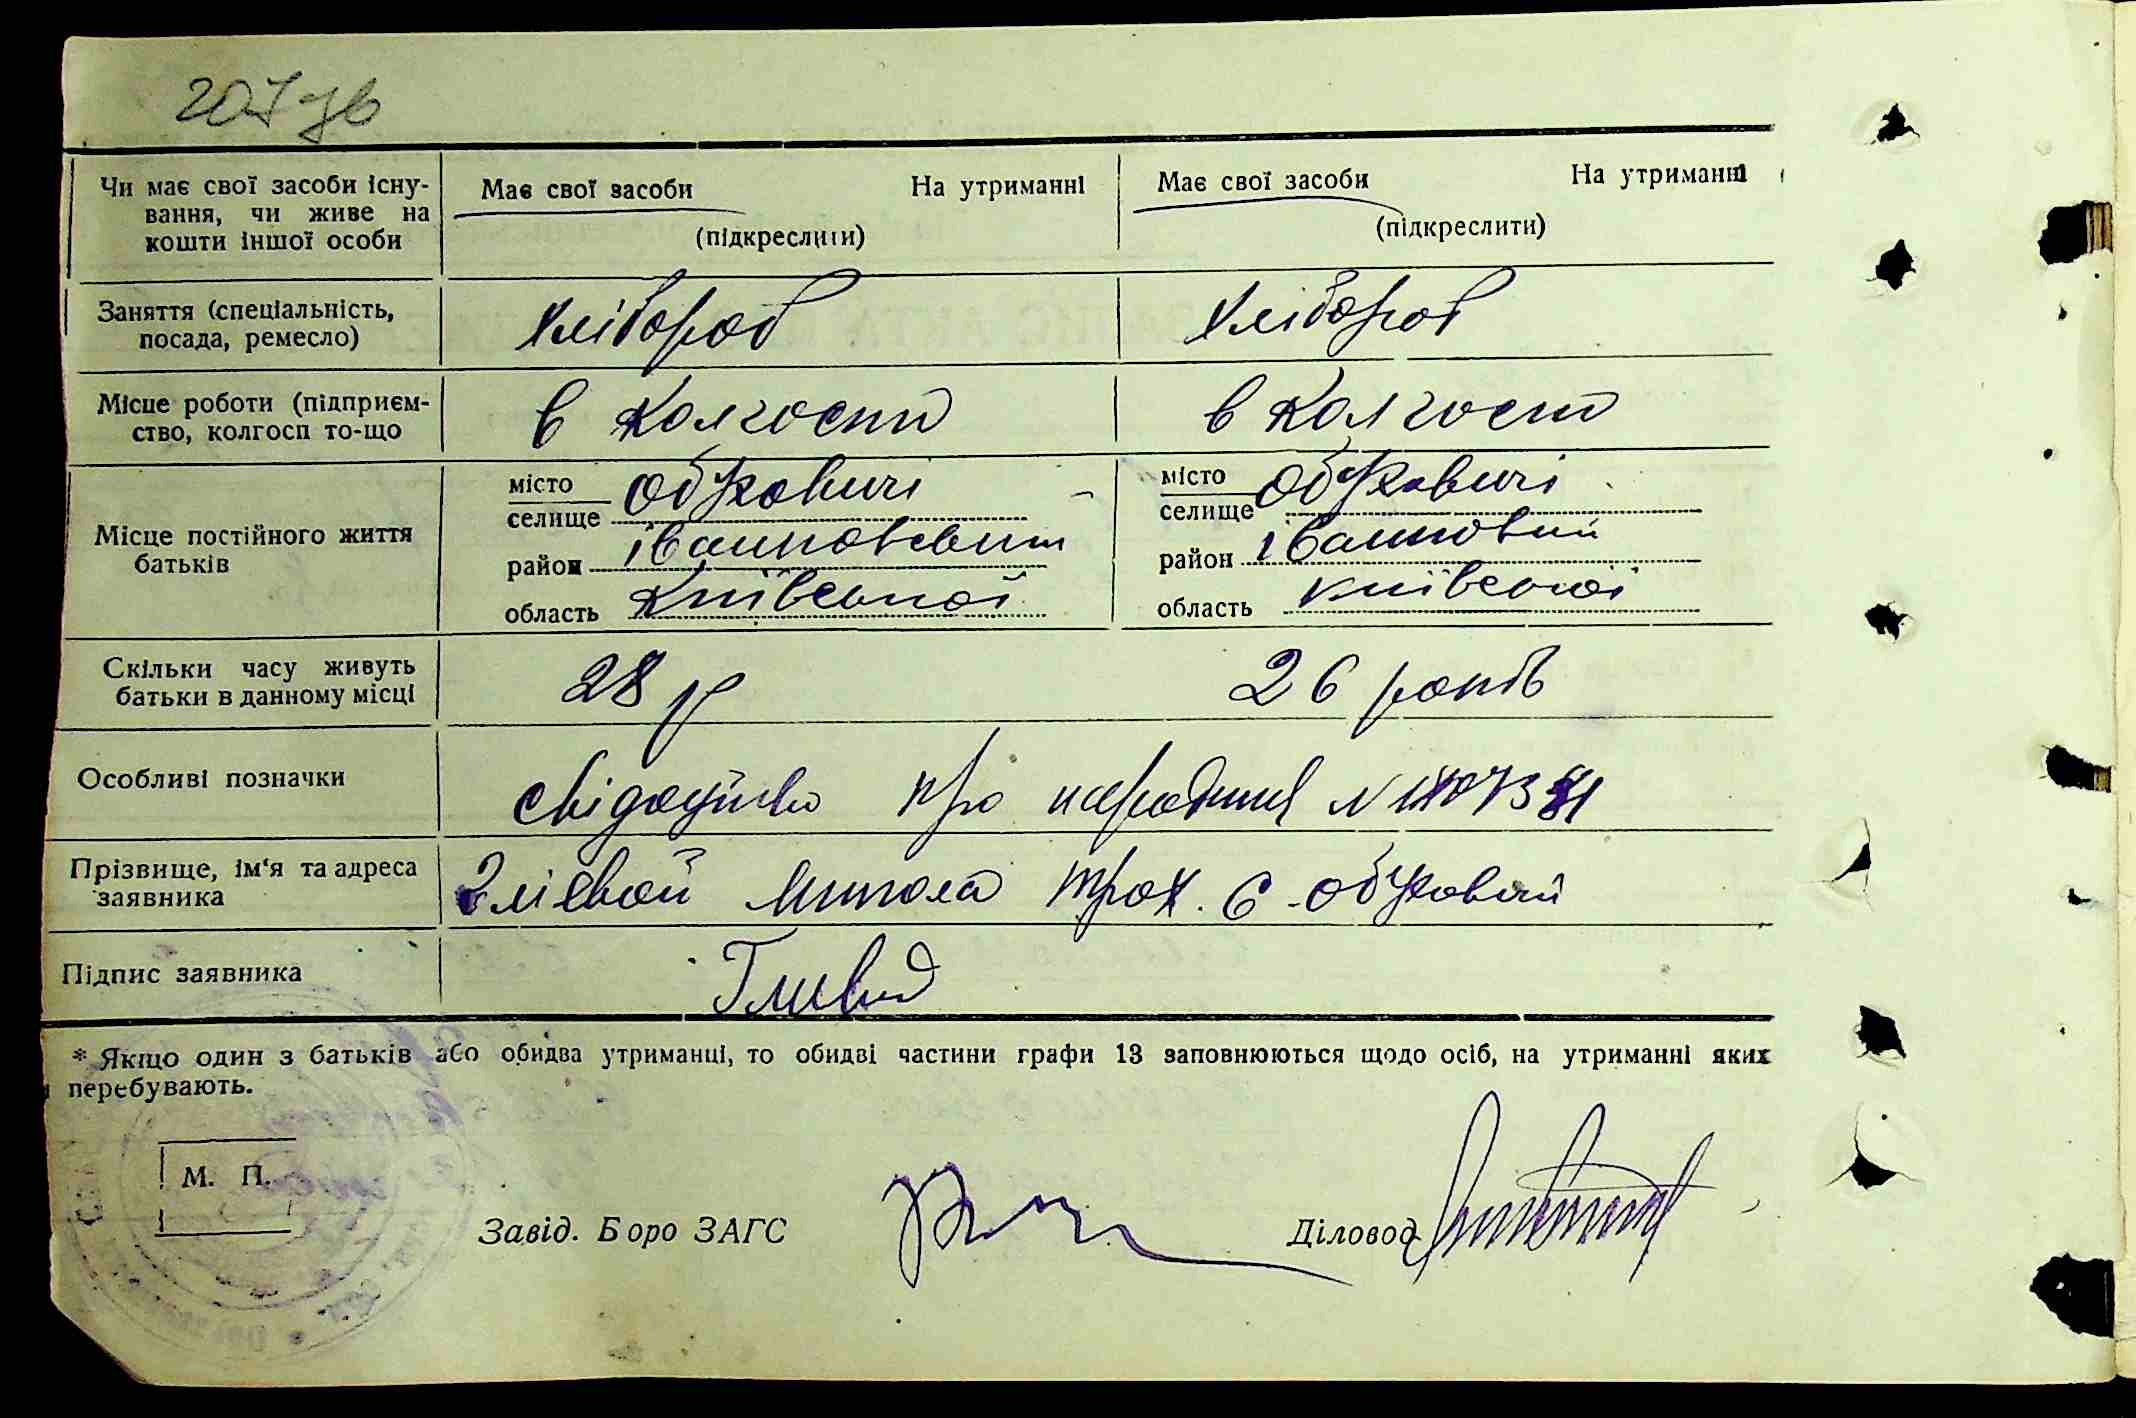 207 зв
Чи має свої засоби існу-
вання, чи живе на
кошти іншої особи
Має свої засоби На утриманні
(підкреслити)
Має свої засоби На утриманні
(підкреслити)
Заняття (спеціальність,
посада, ремесло)
хлібороб
хлібороб
Місце роботи (підприєм-
ство, колгосп то-що
в колгоспі
в колгоспі
Місце постійного життя
батьків
місто
селище
Обуховичі
район Іванковський
область Київської
місто
селище
Обуховичі
район Іванковський
область Київської
Скільки часу живуть
батьки в данному місці
28 р
26 років
Особливі позначки
свідоцтво про народження №
Прізвище, ім‘я та адреса
заявника
Микола Трох. с. Обуховичі
Підпис заявника
* Якщо один з батьків або обидва утриманці, то обидві частини графи 13 заповнюються щодо осіб, на утриманні яких
перебувають.
М. П.
Завід. Боро ЗАГС
Діловод